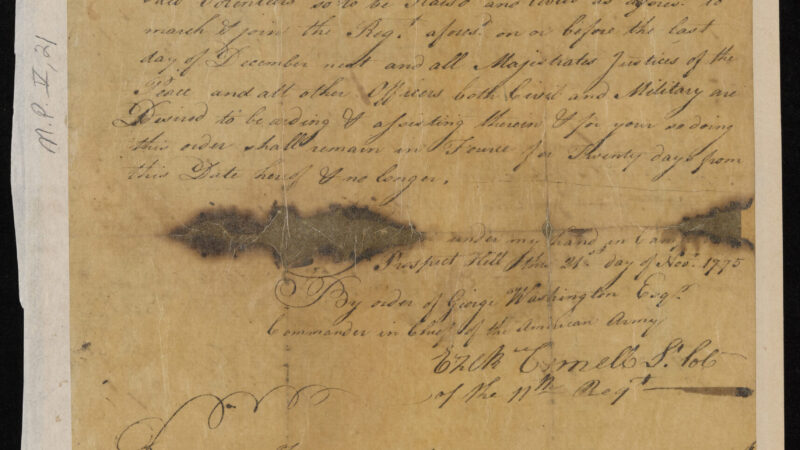 said Volunteers so to be Raised and as afores.d to
march & join the Reg.t afores.d on or before the last
day of December next and all Majestrates Justices of the
Peace and all other Officers both Civil and Military are
Desired to be aiding & assisting therein & for your so doing
this order shall remain in Fource for Twenty days from
this Date hereof & no longer.
under my hand in Cam
Prospect Hill this day of Nov.r 1775
By order of George Washington Esq.r
Commander in Chief of the American Army
Ezek Cornell Lt Col
of the 11th Regt
M.P. IV, 21